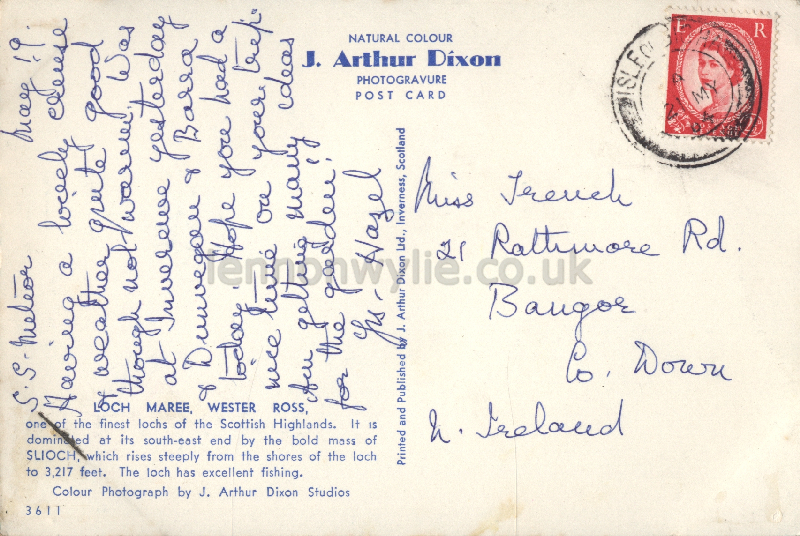 NATURAL COLOUR
J. Arthur Dixon
PHOTOGRAVURE
POST CARD
E R
S.S. Meteor May 19
Having a lovely cruise
& weather quite good
though not warm. Was
at Inverewe yesterday
& Dunvegan & Barra
today. Hope you had a
nice time on your trip.
Am getting many ideas
for the garden!
Yrs - Hazel
Miss Trench
21 Rathmore Rd.
Bangor
Co. Down
N. Ireland
Printed and Published by J. Arthur Dixon Ltd., Inverness, Scotland
lennonwylie.co.uk
LOCH MAREE, WESTER ROSS,
one of the finest lochs of the Scottish Highlands. It is
dominated at its south-east end by the bold mass of
SLIOCH, which rises steeply from the shores of the loch
to 3,217 feet. The loch has excellent fishing.
Colour Photograph by J. Arthur Dixon Studios
3611